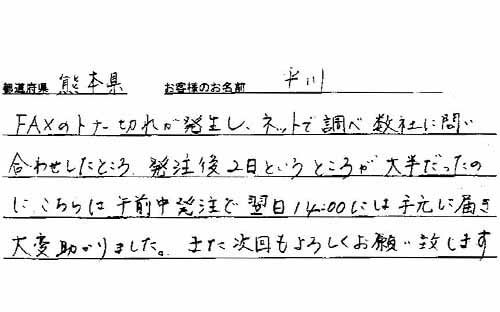 都道府県 熊本県 お客様のお名前 平川
FAXのトナー切れが発生し、ネットで調べ数社に問い
合わせしたところ、発注後2日というところが大半だったの
に、こちらは午前中発注で翌日14:00には手元に届き
大変助かりました。また次回もよろしくお願い致します